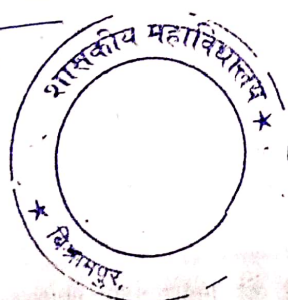 शासकीय महाविद्यालय
★ विश्रामपुर. ★